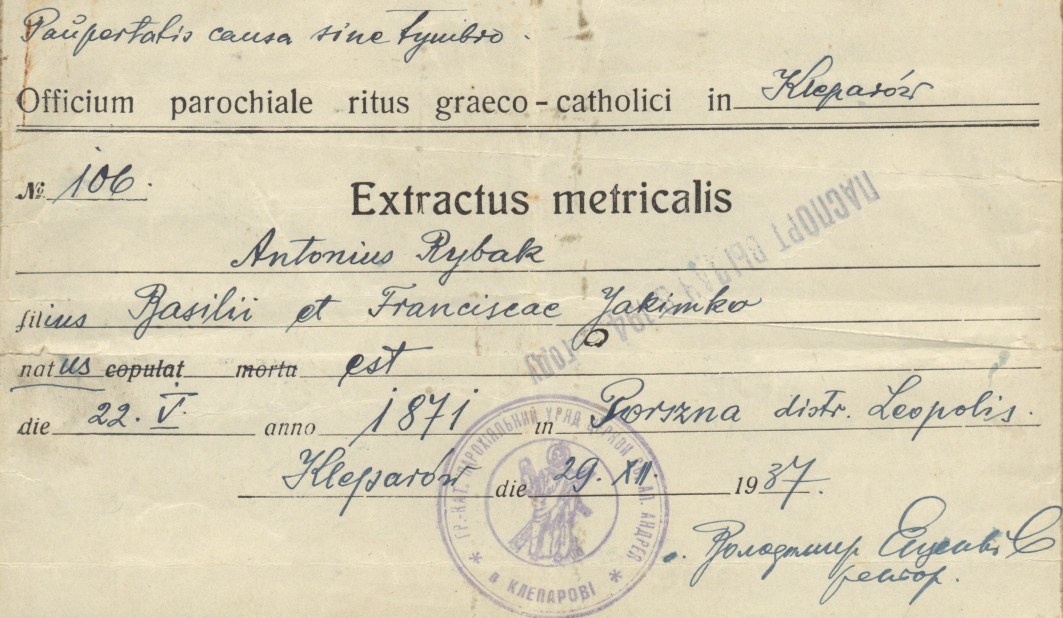 Paŭpertatis causa sine tymbro.
Officium parochiale ritus graeco-catholici in Kleparów
№ 106.
Extractus metricalis
Antonius Rybak
filius Basilii et Franciscae Jakimko
natus copulat mortu est
die 22. V. anno 1871 in Porszna distr. Leopolis.
Kleparów die 29. XII. 1937.
Володимир
ректор.
ПАСПОРТ ВЫДАН
году
ГР.-КАТ. ПАРОХІЯЛЬНИЙ УРЯД ЦЕРКВИ СВ. АП. АНДРЕЯ
в КЛЕПАРОВІ